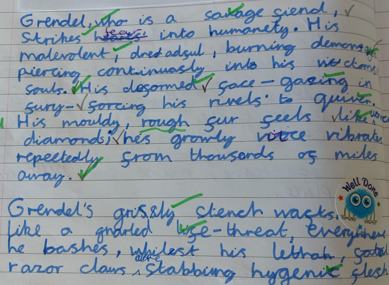 Grendel, who is a savage fiend,
Strikes fear into humanety. His
malevolent, dreadsul, burning demonic
piercing continuasly into his victoms
souls. His desormed face - gazing in
fury - forcing his rivels to quiver.
His mouldy, rough fur feels like
diamonds; he's growly voice vibrates
repeatedly from thousands of miles
away.
Grendel's grissly stench wafts,
Like a gnarled life-threat, everywhere
he bashes, whilest his lethal,
razor claws, stabbing hygenic flesh
Well Done